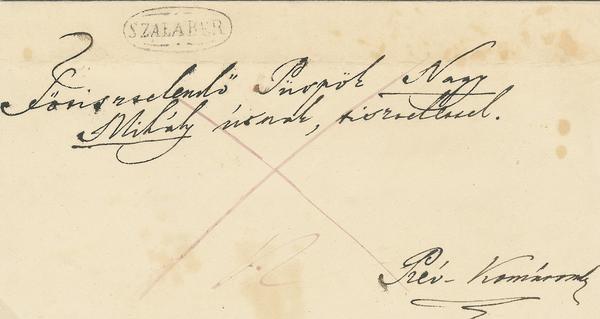 SZALABER
Fötisztelendő Püspök Nagy
Mihály úrnak, tisztelettel.
Rév-Komáromb